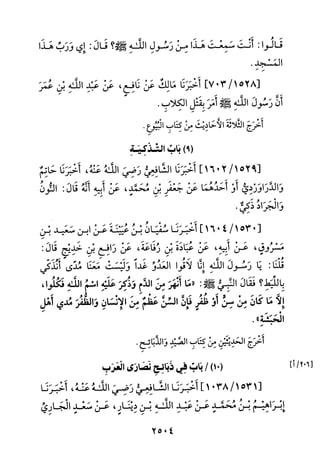 قَالُوا: أَنْتَ سَمِعْتَ هَذَا مِنْ رَسُولِ اللَّهِ ﷺ؟ قَالَ: إِي وَرَبِّ هَذَا
المَسْجِدِ.
[٧٠٣/١٥٢٨] أَخْبَرَنَا مَالِكٌ عَنْ نَافِعٍ، عَنْ عَبْدِ اللَّهِ بْنِ عُمَرَ
أَنَّ رَسُولَ اللَّهِ ﷺ أَمَرَ بِقَتْلِ الكِلَابِ.
أَخْرَجَ الثَّلَاثَةَ الأَحَادِيثَ مِنْ كِتَابِ البُيُوعِ.
(٩) بَابُ التَّذْكِيَةِ
[١٦٠٢/١٥٢٩] أَخْبَرَنَا الشَّافِعِيُّ رَضِيَ اللَّهُ عَنْهُ، أَخْبَرَنَا حَاتِمٌ
وَالدَّرَاوَرْدِيُّ أَوْ أَحَدُهُمَا عَنْ جَعْفَرِ بْنِ مُحَمَّدٍ، عَنْ أَبِيهِ أَنَّهُ قَالَ: النُّونُ
وَالْجَرَادُ ذَكِيٌّ.
[١٦٠٤/١٥٣٠] أَخْبَرَنَا سُفْيَانُ بْنُ عُيَيْنَةَ عَنْ ابنِ سَعِيدِ بْنِ
مَسْرُوقٍ، عَنْ أَبِيهِ، عَنْ عُبَادَةَ بْنِ رِفَاعَةَ، عَنْ رَافِعِ بْنِ خَدِيجٍ قَالَ:
قُلْنَا: يَا رَسُولَ اللَّهِ إِنَّا لَاقُوا العَدُوِّ غَداً وَلَيْسَتْ مَعَنَا مُدًى أَنُذَكِّي
بِاللِّيطِ؟ فَقَالَ النَّبِيُّ ﷺ: «مَا أَنْهَرَ مِنَ الدَّمِ وَذُكِرَ عَلَيْهِ اسْمُ اللَّهِ فَكُلُوا،
إِلَّا مَا كَانَ مِنْ سِنٍّ أَوْ ظُفُرٍ فَإِنَّ السِّنَّ عَظْمٌ مِنَ الإِنْسَانِ وَالظُّفُرَ مُدي أَهْلِ
الْحَبَشَةِ».
أَخْرَجَ الحَدِيثَيْنِ مِنْ كِتَابِ الصَّيْدِ وَالذَّبَائِحِ.
[٢٠٦/أ] (١٠) / بَابٌ فِي ذَبَائِحِ نَصَارَى العَرَبِ
[١٠٣٨/١٥٣١] أَخْبَرَنَا الشَّافِعِيُّ رَضِيَ اللَّهُ عَنْهُ، أَخْبَرَنَا
إِبْرَاهِيمُ بْنُ مُحَمَّدٍ عَنْ عَبْدِ اللَّهِ بْنِ دِينَارٍ، عَنْ سَعْدٍ الْجَارِيِّ
٢٥٠٤